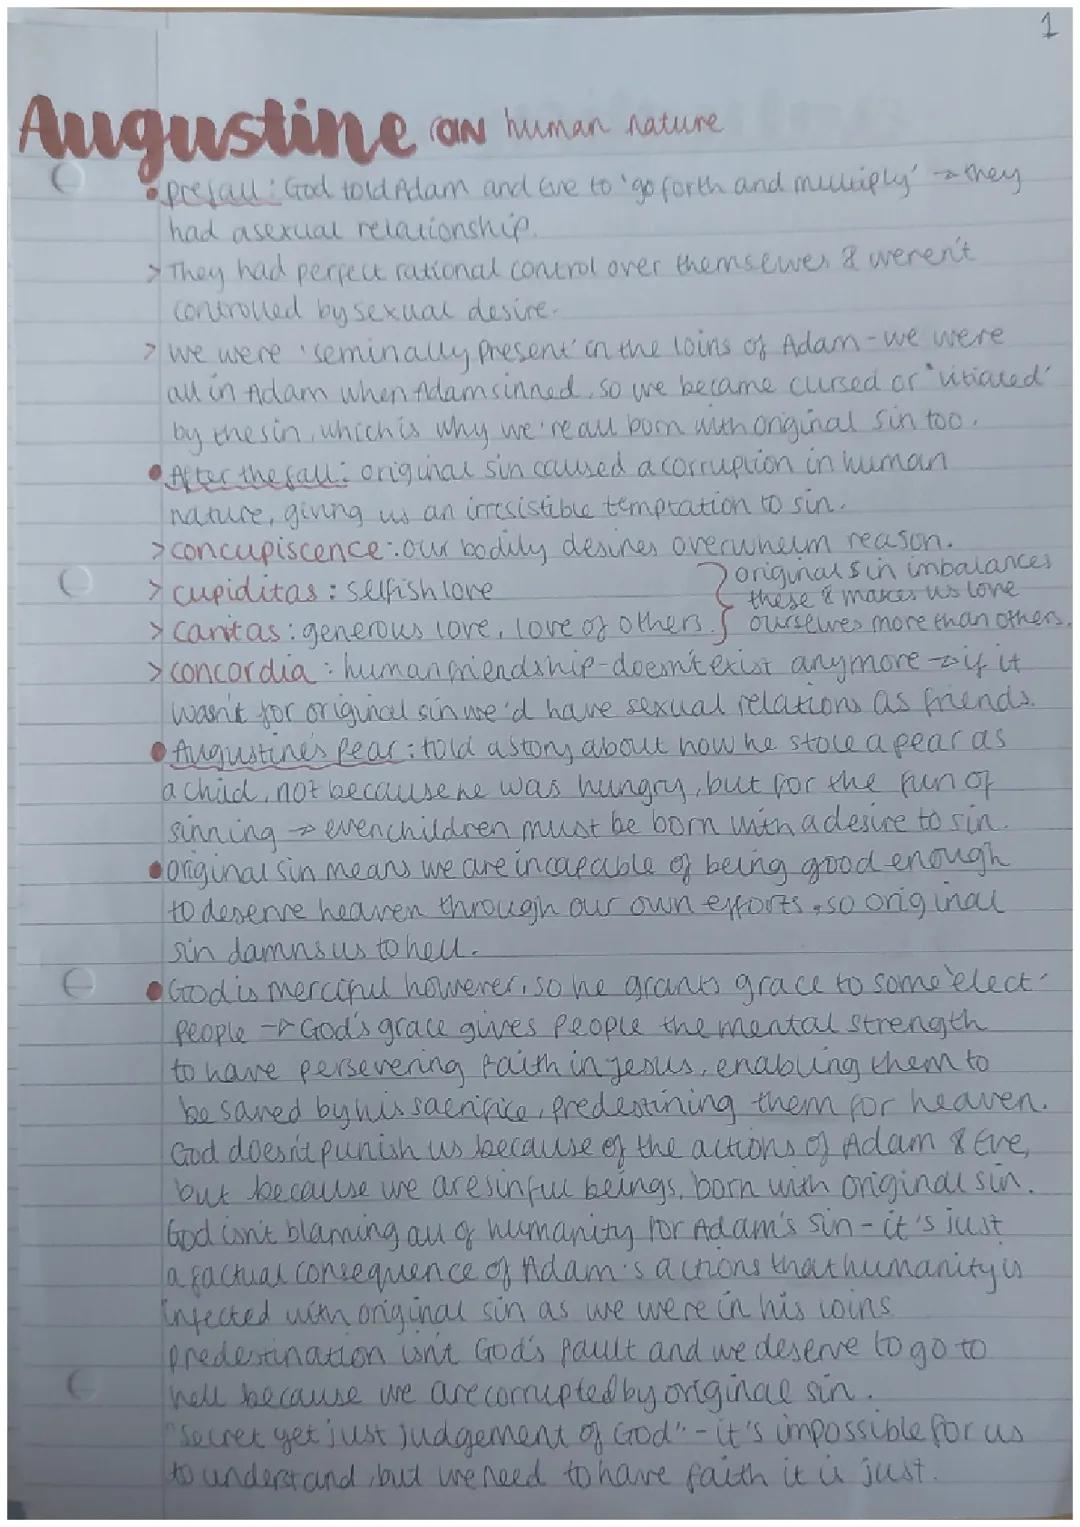 1
Augustine ON human nature
• prefall: God told Adam and Eve to 'go forth and multiply' → they
had a sexual relationship.
> They had perfect rational control over themselves & weren't
controlled by sexual desire.
> We were 'seminally present' in the loins of Adam - we were
all in Adam when Adam sinned, so we became cursed or "vitiated'
by the sin, which is why we're all born with original sin too.
• After the fall: original sin caused a corruption in human
nature, giving us an irresistible temptation to sin.
> concupiscence: our bodily desires overwhelm reason.
> cupiditas: selfish love
> caritas: generous love, love of others. } original sin imbalances
these & makes us love
ourselves more than others.
> concordia: human friendship - doesn't exist anymore → if it
wasn't for original sin we'd have sexual relations as friends.
• Augustine's Pear: told a story about how he stole a pear as
a child, not because he was hungry, but for the fun of
sinning → even children must be born with a desire to sin.
• original sin means we are incapable of being good enough
to deserve heaven through our own efforts, so original
sin damns us to hell.
• God is merciful however, so he grants grace to some 'elect'
people → God's grace gives people the mental strength
to have persevering faith in jesus, enabling them to
be saved by his sacrifice, predestining them for heaven.
God doesn't punish us because of the actions of Adam & Eve,
but because we are sinful beings, born with original sin.
God isn't blaming all of humanity for Adam's sin - it's just
a factual consequence of Adam's actions that humanity is
infected with original sin as we were in his loins
predestination isn't God's fault and we deserve to go to
hell because we are corrupted by original sin.
"Secret yet just judgement of God" - it's impossible for us
to understand, but we need to have faith it is just.